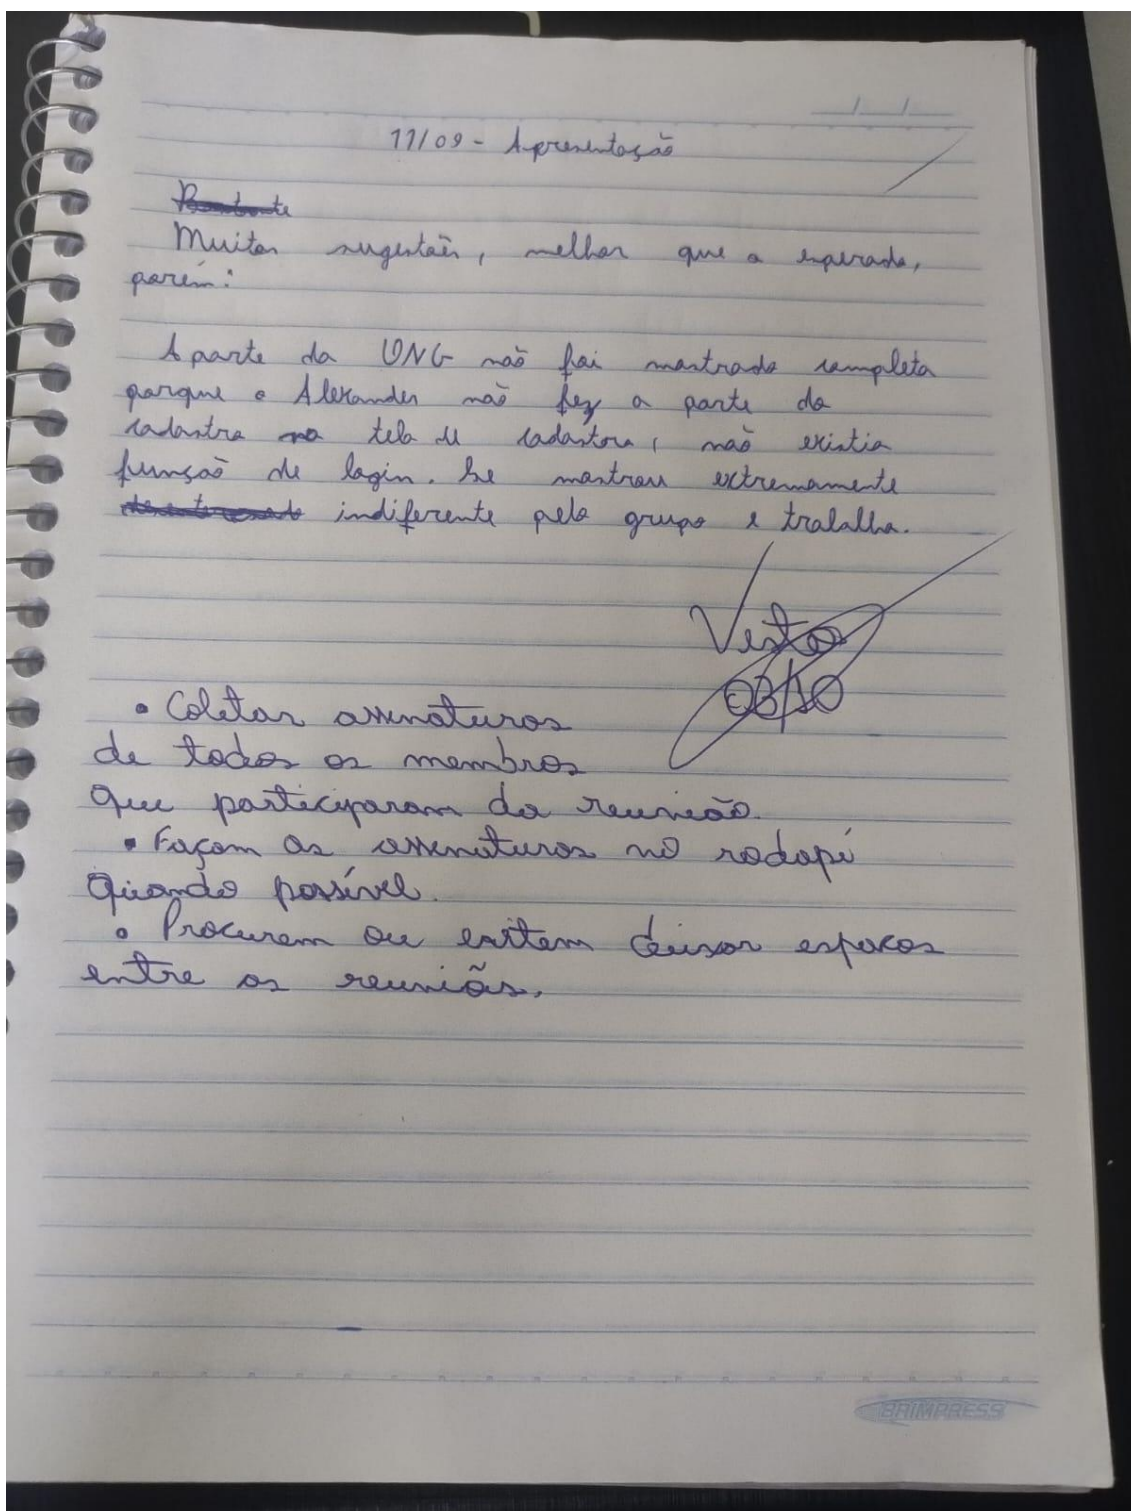 11/09 - Apresentação
Bastante
Muitas sugestões, melhor que o esperado,
porém:
A parte da ONG não foi mostrada completa
porque o Alexander não fez a parte do
cadastro na tela de cadastro, não existia
função de login. Se mostrou extremamente
desinteressado indiferente pelo grupo e trabalho.
Visto
03/10
• Coletar assinaturas
de todos os membros
que participaram da reunião.
• Façam as assinaturas no rodapé
quando possível.
• Procurem ou evitem deixar espaços
entre as reuniões.
BRIMPRESS